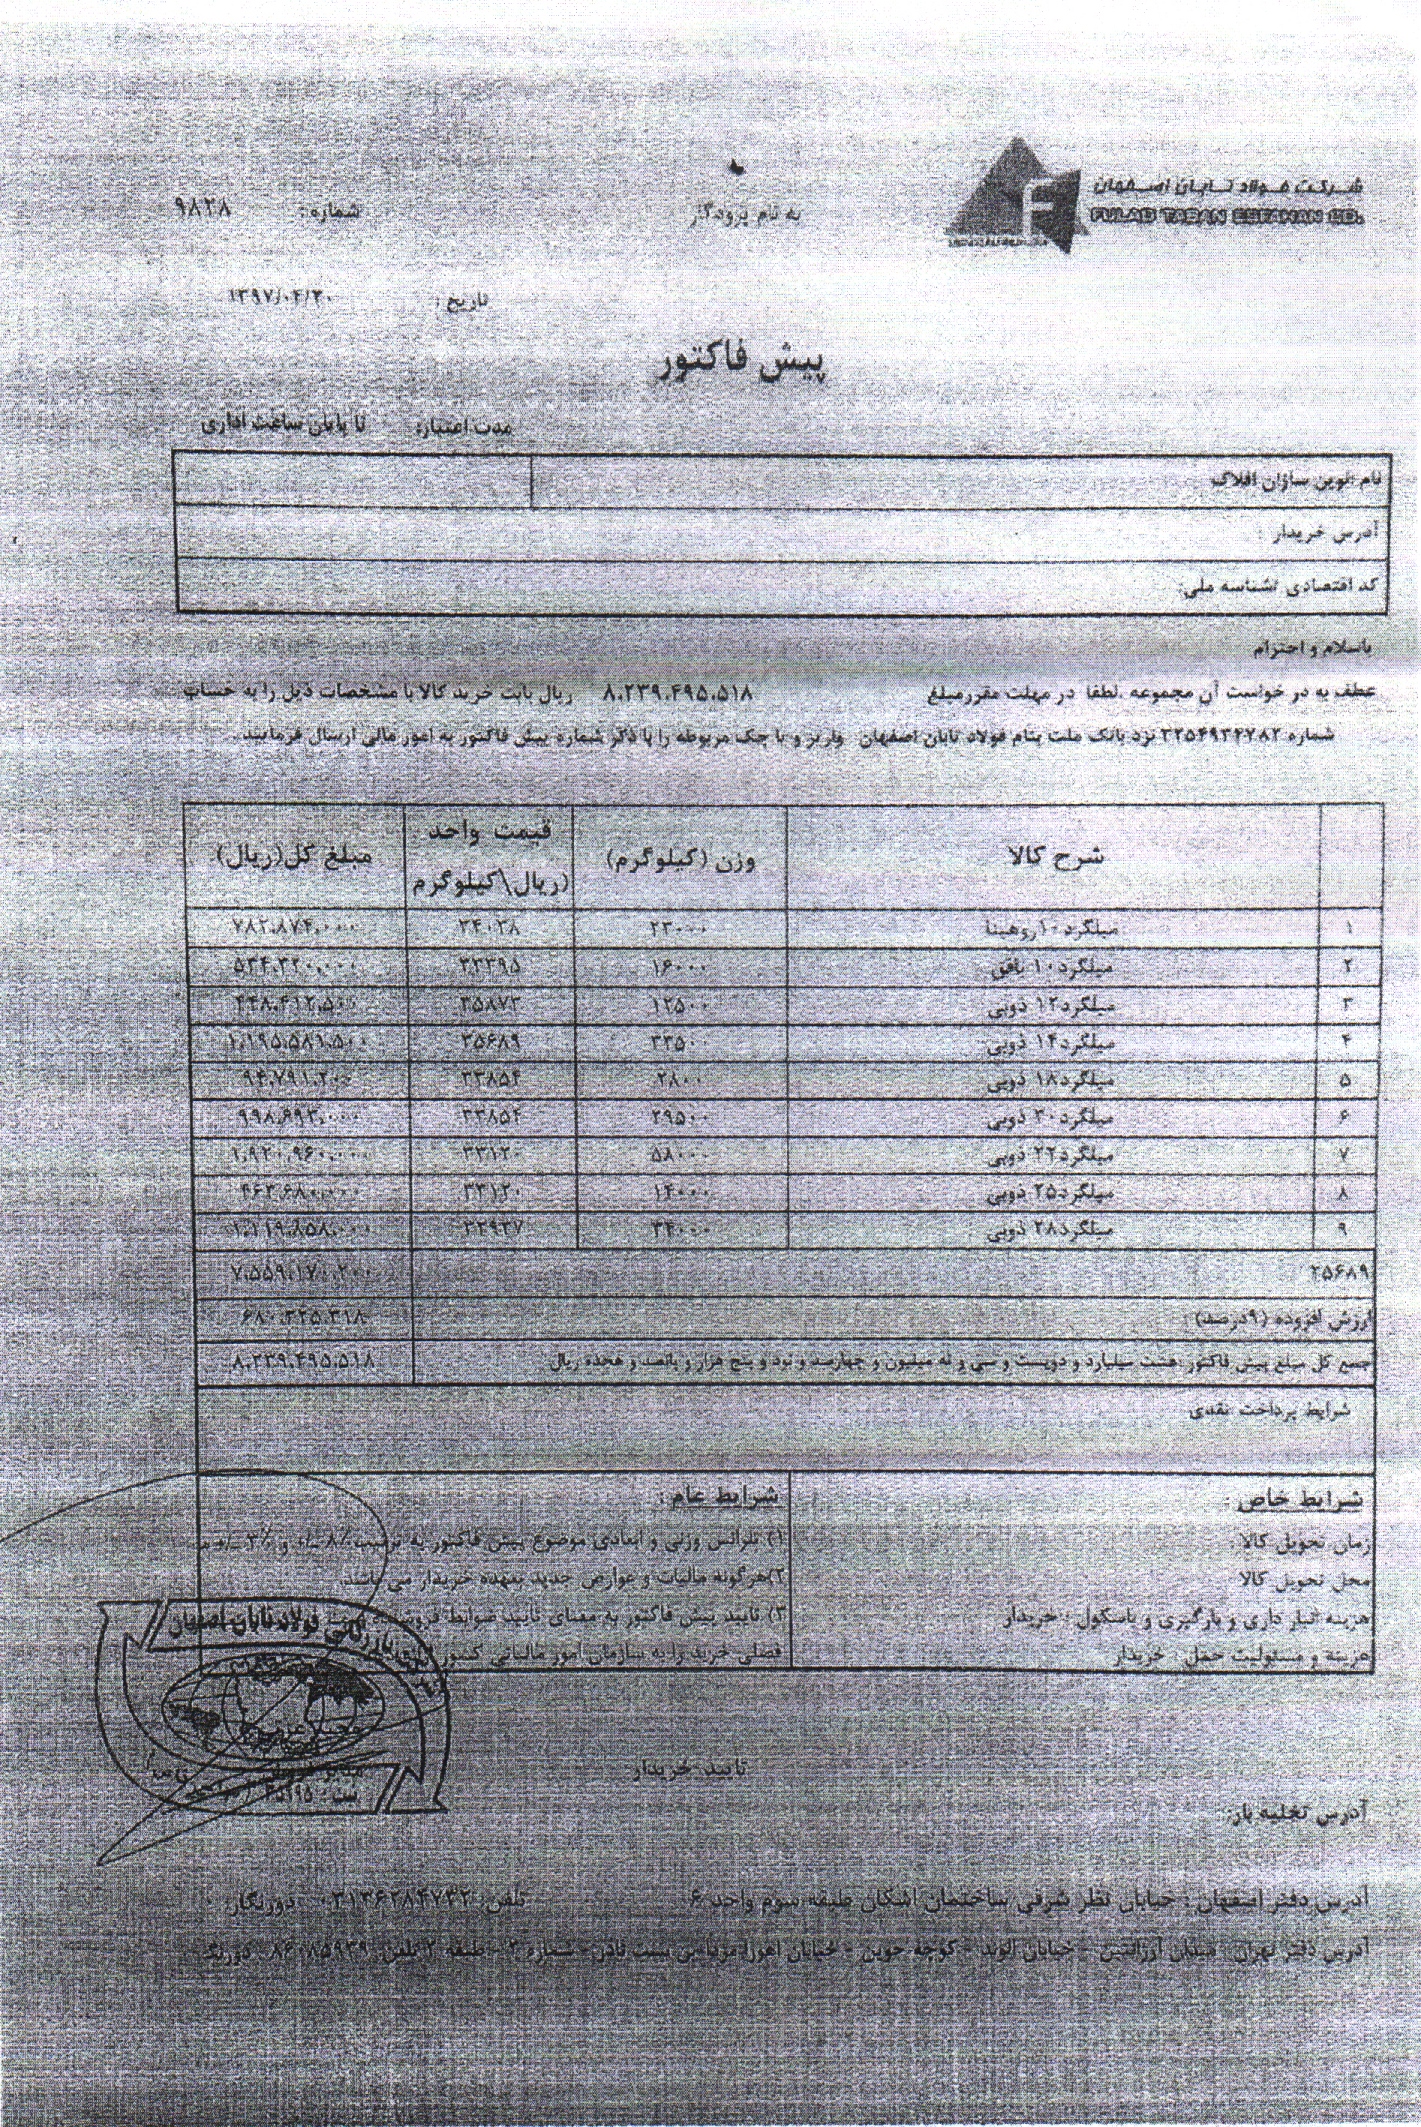 شرکت فولاد تابان اصفهان
FULAD TABAN ESFAHAN CO.
به نام پرودگار
شماره : ۹۸۲۸
تاریخ : ۱۳۹۷/۰۴/۳۰
پیش فاکتور
مدت اعتبار: تا پایان ساعت اداری
نام :نوین سازان افلاک
آدرس خریدار :
کد اقتصادی /شناسه ملی:
باسلام و احترام
عطف به در خواست آن مجموعه .لطفا در مهلت مقررمبلغ ۸،۲۳۹،۴۹۵،۵۱۸ ریال بابت خرید کالا با مشخصات ذیل را به حساب
شماره نزد بانک ملت بنام فولاد تابان اصفهان واریز و یا چک مربوطه را با ذکر شماره پیش فاکتور به امور مالی ارسال فرمایید .
شرح کالا وزن (کیلوگرم) قیمت واحد (ریال\کیلوگرم مبلغ کل(ریال)
۱ میلگرد۱۰روهینا ۲۳۰۰۰ ۳۴۰۳۸ ۷۸۲،۸۷۴،۰۰۰
۲ میلگرد۱۰ بافق ۱۶۰۰۰ ۳۳۳۹۵ ۵۳۴،۳۲۰،۰۰۰
۳ میلگرد۱۲ ذوبی ۱۲۵۰۰ ۳۵۸۷۳ ۴۴۸،۴۱۲،۵۰۰
۴ میلگرد۱۴ ذوبی ۳۳۵۰۰ ۳۵۶۸۹ ۱،۱۹۵،۵۸۱،۵۰۰
۵ میلگرد۱۸ ذوبی ۲۸۰۰ ۳۳۸۵۴ ۹۴،۷۹۱،۲۰۰
۶ میلگرد۲۰ ذوبی ۲۹۵۰۰ ۳۳۸۵۴ ۹۹۸،۶۹۳،۰۰۰
۷ میلگرد۲۲ ذوبی ۵۸۰۰۰ ۳۳۱۲۰ ۱،۹۲۰،۹۶۰،۰۰۰
۸ میلگرد۲۵ ذوبی ۱۴۰۰۰ ۳۳۱۲۰ ۴۶۳،۶۸۰،۰۰۰
۹ میلگرد۲۸ ذوبی ۳۴۰۰۰ ۳۲۹۳۷ ۱،۱۱۹،۸۵۸،۰۰۰
۲۵۶۸۹ ۷،۵۵۹،۱۷۰،۲۰۰
ارزش افزوده (۹درصد) ۶۸۰،۳۲۵،۳۱۸
جمع کل مبلغ پیش فاکتور :هشت میلیارد و دویست و سی و نه میلیون و چهارصد و نود و پنج هزار و پانصد و هجده ریال ۸،۲۳۹،۴۹۵،۵۱۸
شرایط پرداخت :نقدی
شرایط خاص :
زمان تحویل کالا :
محل تحویل کالا
هزینه انبار داری و بارگیری و باسکول : خریدار
هزینه و مسئولیت حمل : خریدار
شرایط عام :
۱) تلرانس وزنی و ابعادی موضوع پیش فاکتور به ترتیب
۲)هرگونه مالیات و عوارض جدید بعهده خریدار می باشد.
۳) تایید پیش فاکتور به معنای تایید ضوابط
فصلی خرید را به سازمان امور مالیاتی کشور
بازرگانی فولاد تابان اصفهان
تایید خریدار
آدرس تخلیه بار:
آدرس دفتر اصفهان : خیابان نظر شرقی ساختمان اشکان طبقه سوم واحد ۶ تلفن: ۰۳۱۳۶۲۸۴۷۳۲ دورنگار:
آدرس دفتر تهران میدان آرژانتین - خیابان الوند - کوچه جوین - خیابان بن بست نادر- شماره ۲ - طبقه ۲ تلفن: ۸۶۰۸۵۹۳۹